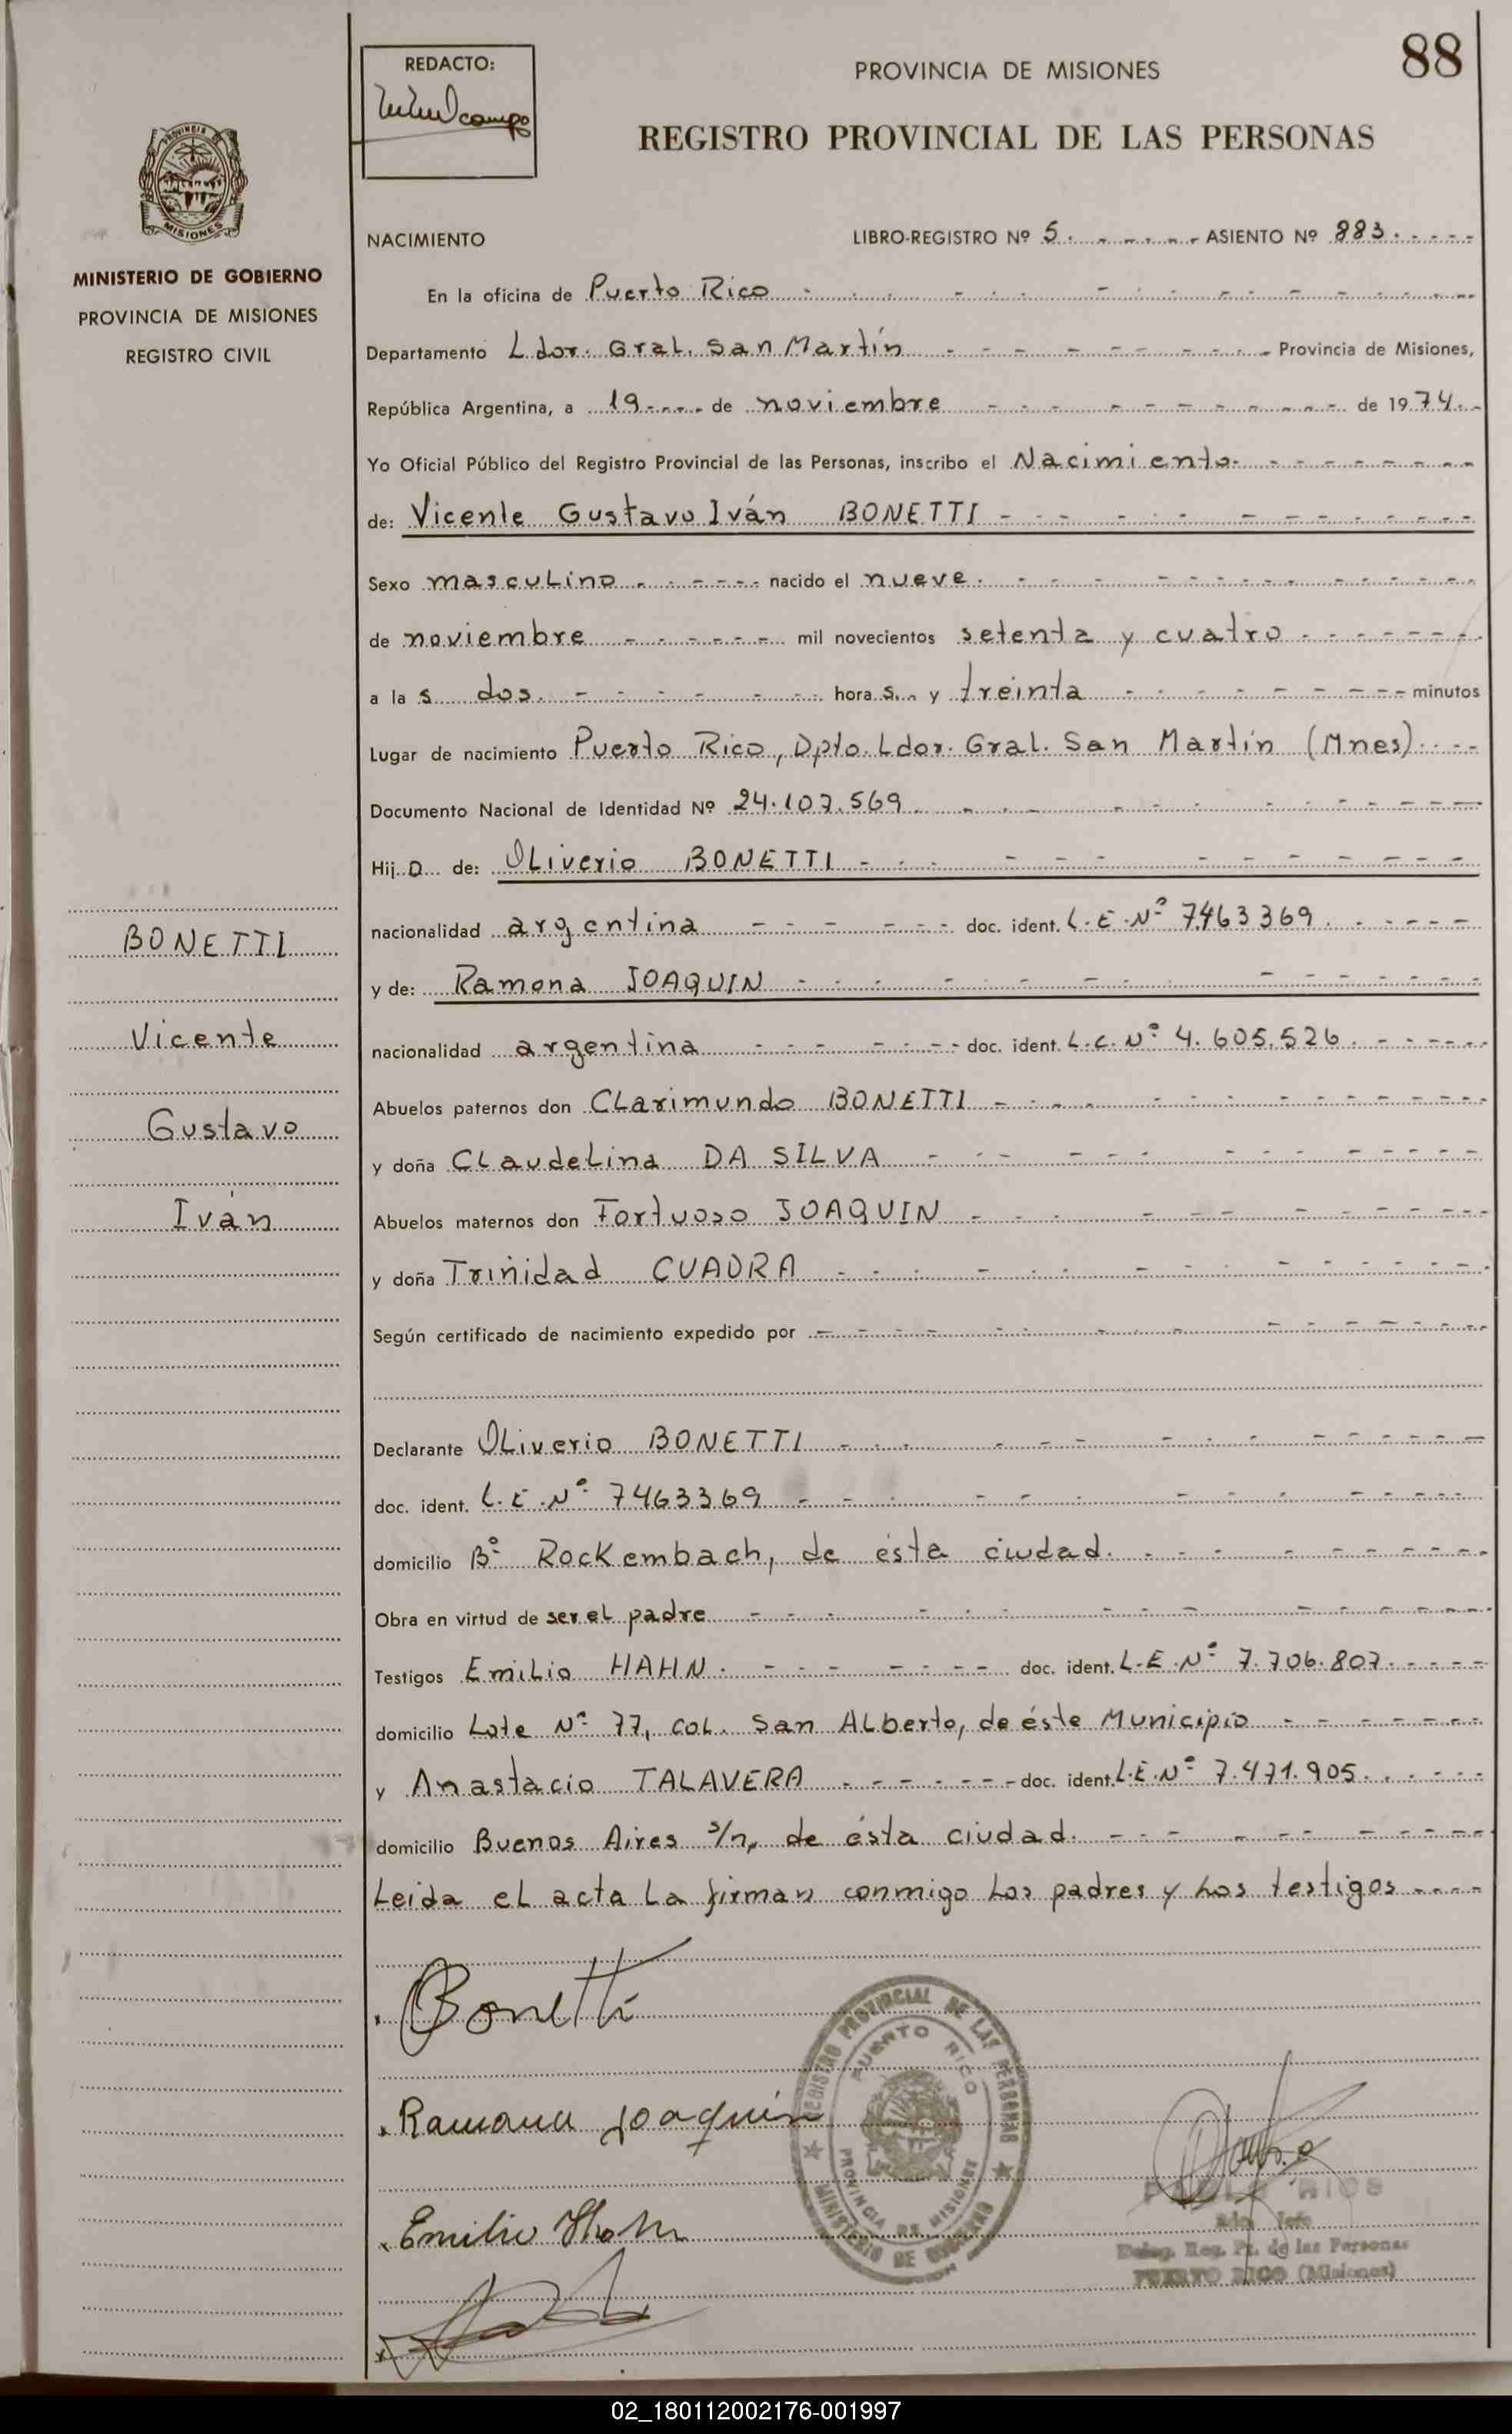 88
REDACTO:
PROVINCIA DE MISIONES
REGISTRO PROVINCIAL DE LAS PERSONAS
MISIONES
MINISTERIO DE GOBIERNO
PROVINCIA DE MISIONES
REGISTRO CIVIL
NACIMIENTO LIBRO-REGISTRO Nº 5. ASIENTO Nº 883.
En la oficina de Puerto Rico
Departamento Ldor. Gral. San Martín Provincia de Misiones,
República Argentina, a 19 de noviembre de 1974.
Yo Oficial Público del Registro Provincial de las Personas, inscribo el Nacimiento.
de: Vicente Gustavo Iván BONETTI
Sexo masculino nacido el nueve.
de noviembre mil novecientos setenta y cuatro
a la s dos. hora s. y treinta minutos
Lugar de nacimiento Puerto Rico, Dpto. Ldor. Gral. San Martín (Mnes).
Documento Nacional de Identidad Nº 24.107.569
Hij o de: Oliverio BONETTI
nacionalidad argentina doc. ident. L.E.Nº 7463369
y de: Ramona JOAQUIN
nacionalidad argentina doc. ident. L.C.Nº 4.605.526.
Abuelos paternos don Clarimundo BONETTI
y doña Claudelina DA SILVA
Abuelos maternos don Fortuoso JOAQUIN
y doña Trinidad CUADRA
Según certificado de nacimiento expedido por
Declarante Oliverio BONETTI
doc. ident. L.E.Nº 7463369
domicilio Bº Rockembach, de ésta ciudad.
Obra en virtud de ser el padre
Testigos Emilio HAHN. doc. ident. L.E.Nº 7.706.807.
domicilio Lote Nº 77, col. San Alberto, de éste Municipio
y Anastacio TALAVERA doc. ident. L.E.Nº 7.471.905.
domicilio Buenos Aires s/n, de ésta ciudad.
Leida el acta la firman conmigo los padres y los testigos
BONETTI
Vicente
Gustavo
Iván
Bonetti
Ramona Joaquin
Emilio Hahn
REGISTRO PROVINCIAL DE LAS PERSONAS
PUERTO RICO
PROVINCIA DE MISIONES
MINISTERIO DE GOBIERNO
Deleg. Reg. Pr. de las Personas
PUERTO RICO (Misiones)
02_180112002176-001997